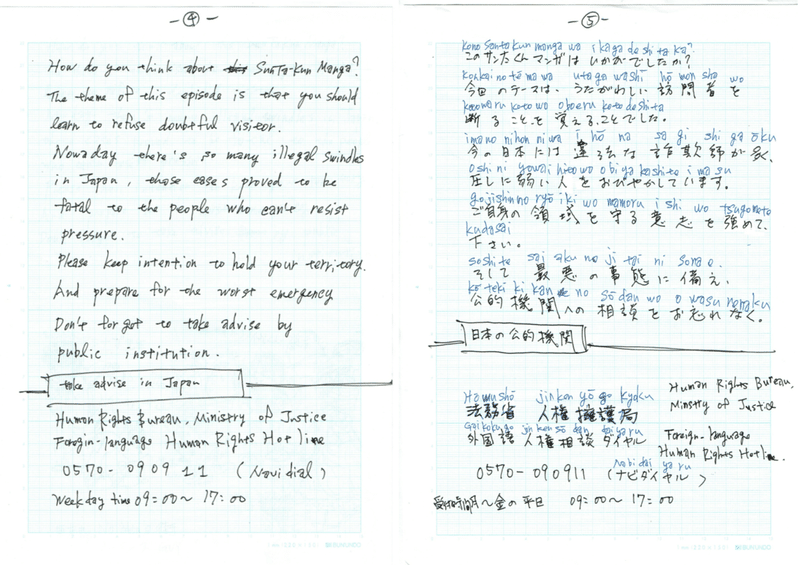 -④-
How do you think about SunTa-Kun Manga?
The theme of this episode is that you should
learn to refuse doubtful visitor.
Nowaday there's so many illegal swindles
in Japan, those cases proved to be
fatal to the people who can't resist
pressure.
Please keep intention to hold your territory.
And prepare for the worst emergency
Don't forgot to take advise by
public institution.
take advise in Japan
Human Rights Bureau, Ministry of Justice
Foregin-language Human Rights Hotline
0570-090911 (Navi dial)
Weekday time 09:00~17:00
-⑤-
kono Santakun manga wa ikaga deshita ka?
このサン太くんマンガはいかがでしたか?
konkai no tēma wa utagawashī hōmonsha wo
今回のテーマは、うたがわしい訪問者を
kotowaru koto wo oboeru koto deshita
断ることを覚えることでした。
ima no nihon niwa ihō na sagishi ga ōku
今の日本には違法な詐欺師が多く、
oshi ni yowai hito wo obiyakashite imasu
圧しに弱い人をおびやかしています。
gojishin no ryōiki wo mamoru ishi wo tsugomete
ご自身の領域を守る意志を強めて
kudasai
下さい。
soshite saiaku no jitai ni sonae
そして最悪の事態に備え、
kōteki kikan e no sōdan wo o wasurenaku
公的機関への相談をお忘れなく。
日本の公的機関
Hōmushō jinken yōgo kyoku
法務省 人権擁護局
Human Rights Bureau,
Ministry of Justice
Gaikokugo jinken sōdan daiyaru
外国語人権相談ダイヤル
Foreign-language
Human Rights Hotline.
0570-090911
Nabi daiyaru
(ナビダイヤル)
受付時間月~金の平日 09:00~17:00